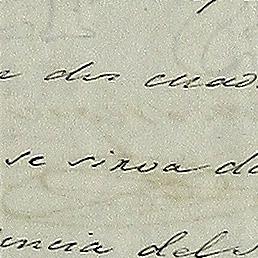 a dos cuad
se sirva da
encia del